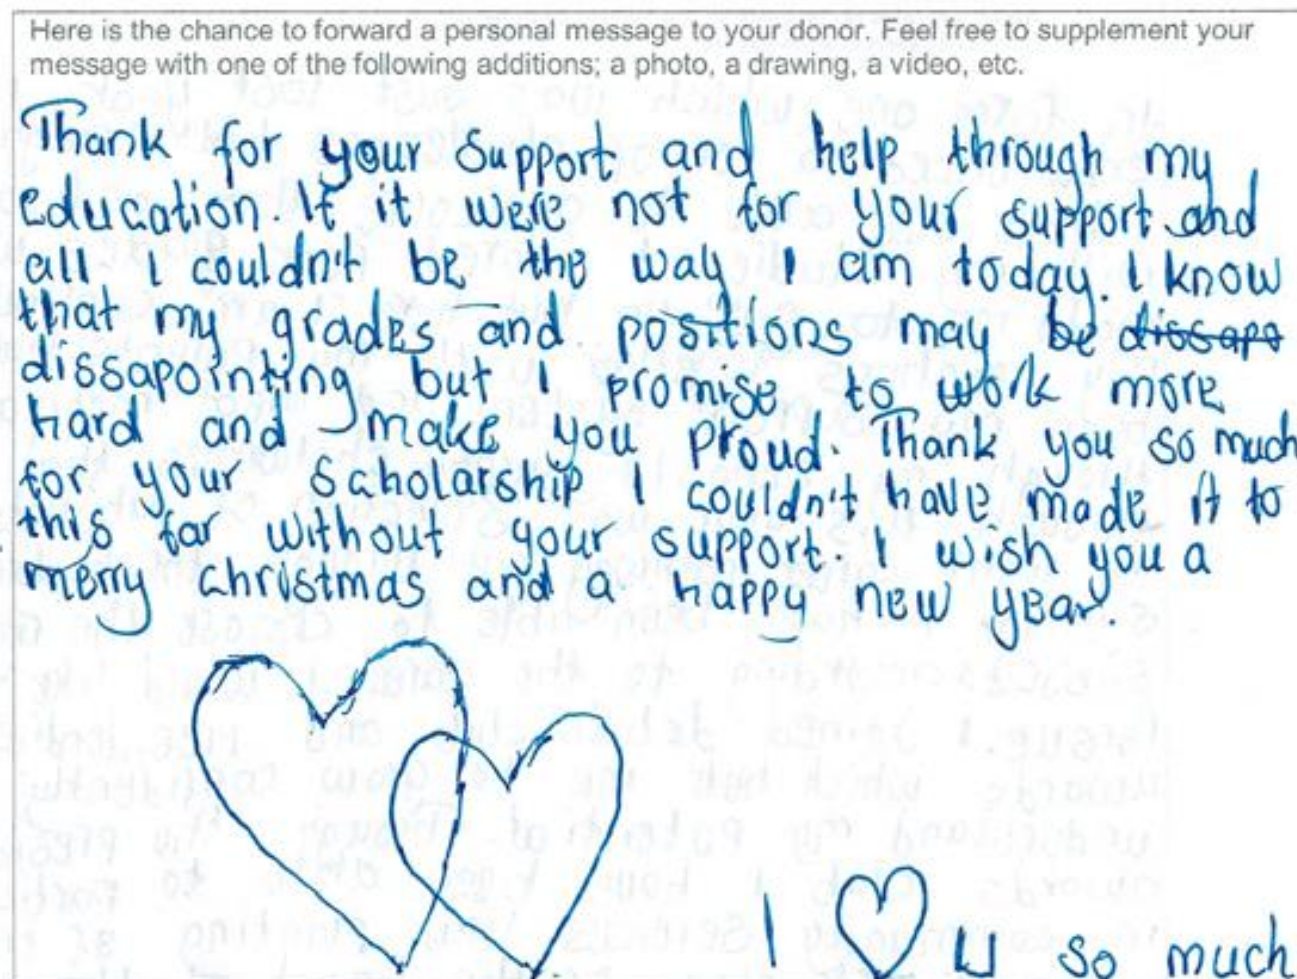 Here is the chance to forward a personal message to your donor. Feel free to supplement your
message with one of the following additions; a photo, a drawing, a video, etc.
Thank for your support and help through my
education. If it were not for your support and
all I couldn't be the way I am today. I know
that my grades and positions may be dissapo
dissapointing but I promise to work more
hard and make you proud. Thank you so much
for your Scholarship I couldn't have made it to
this far without your support. I wish you a
merry Christmas and a happy new year.
I ♡ U so much